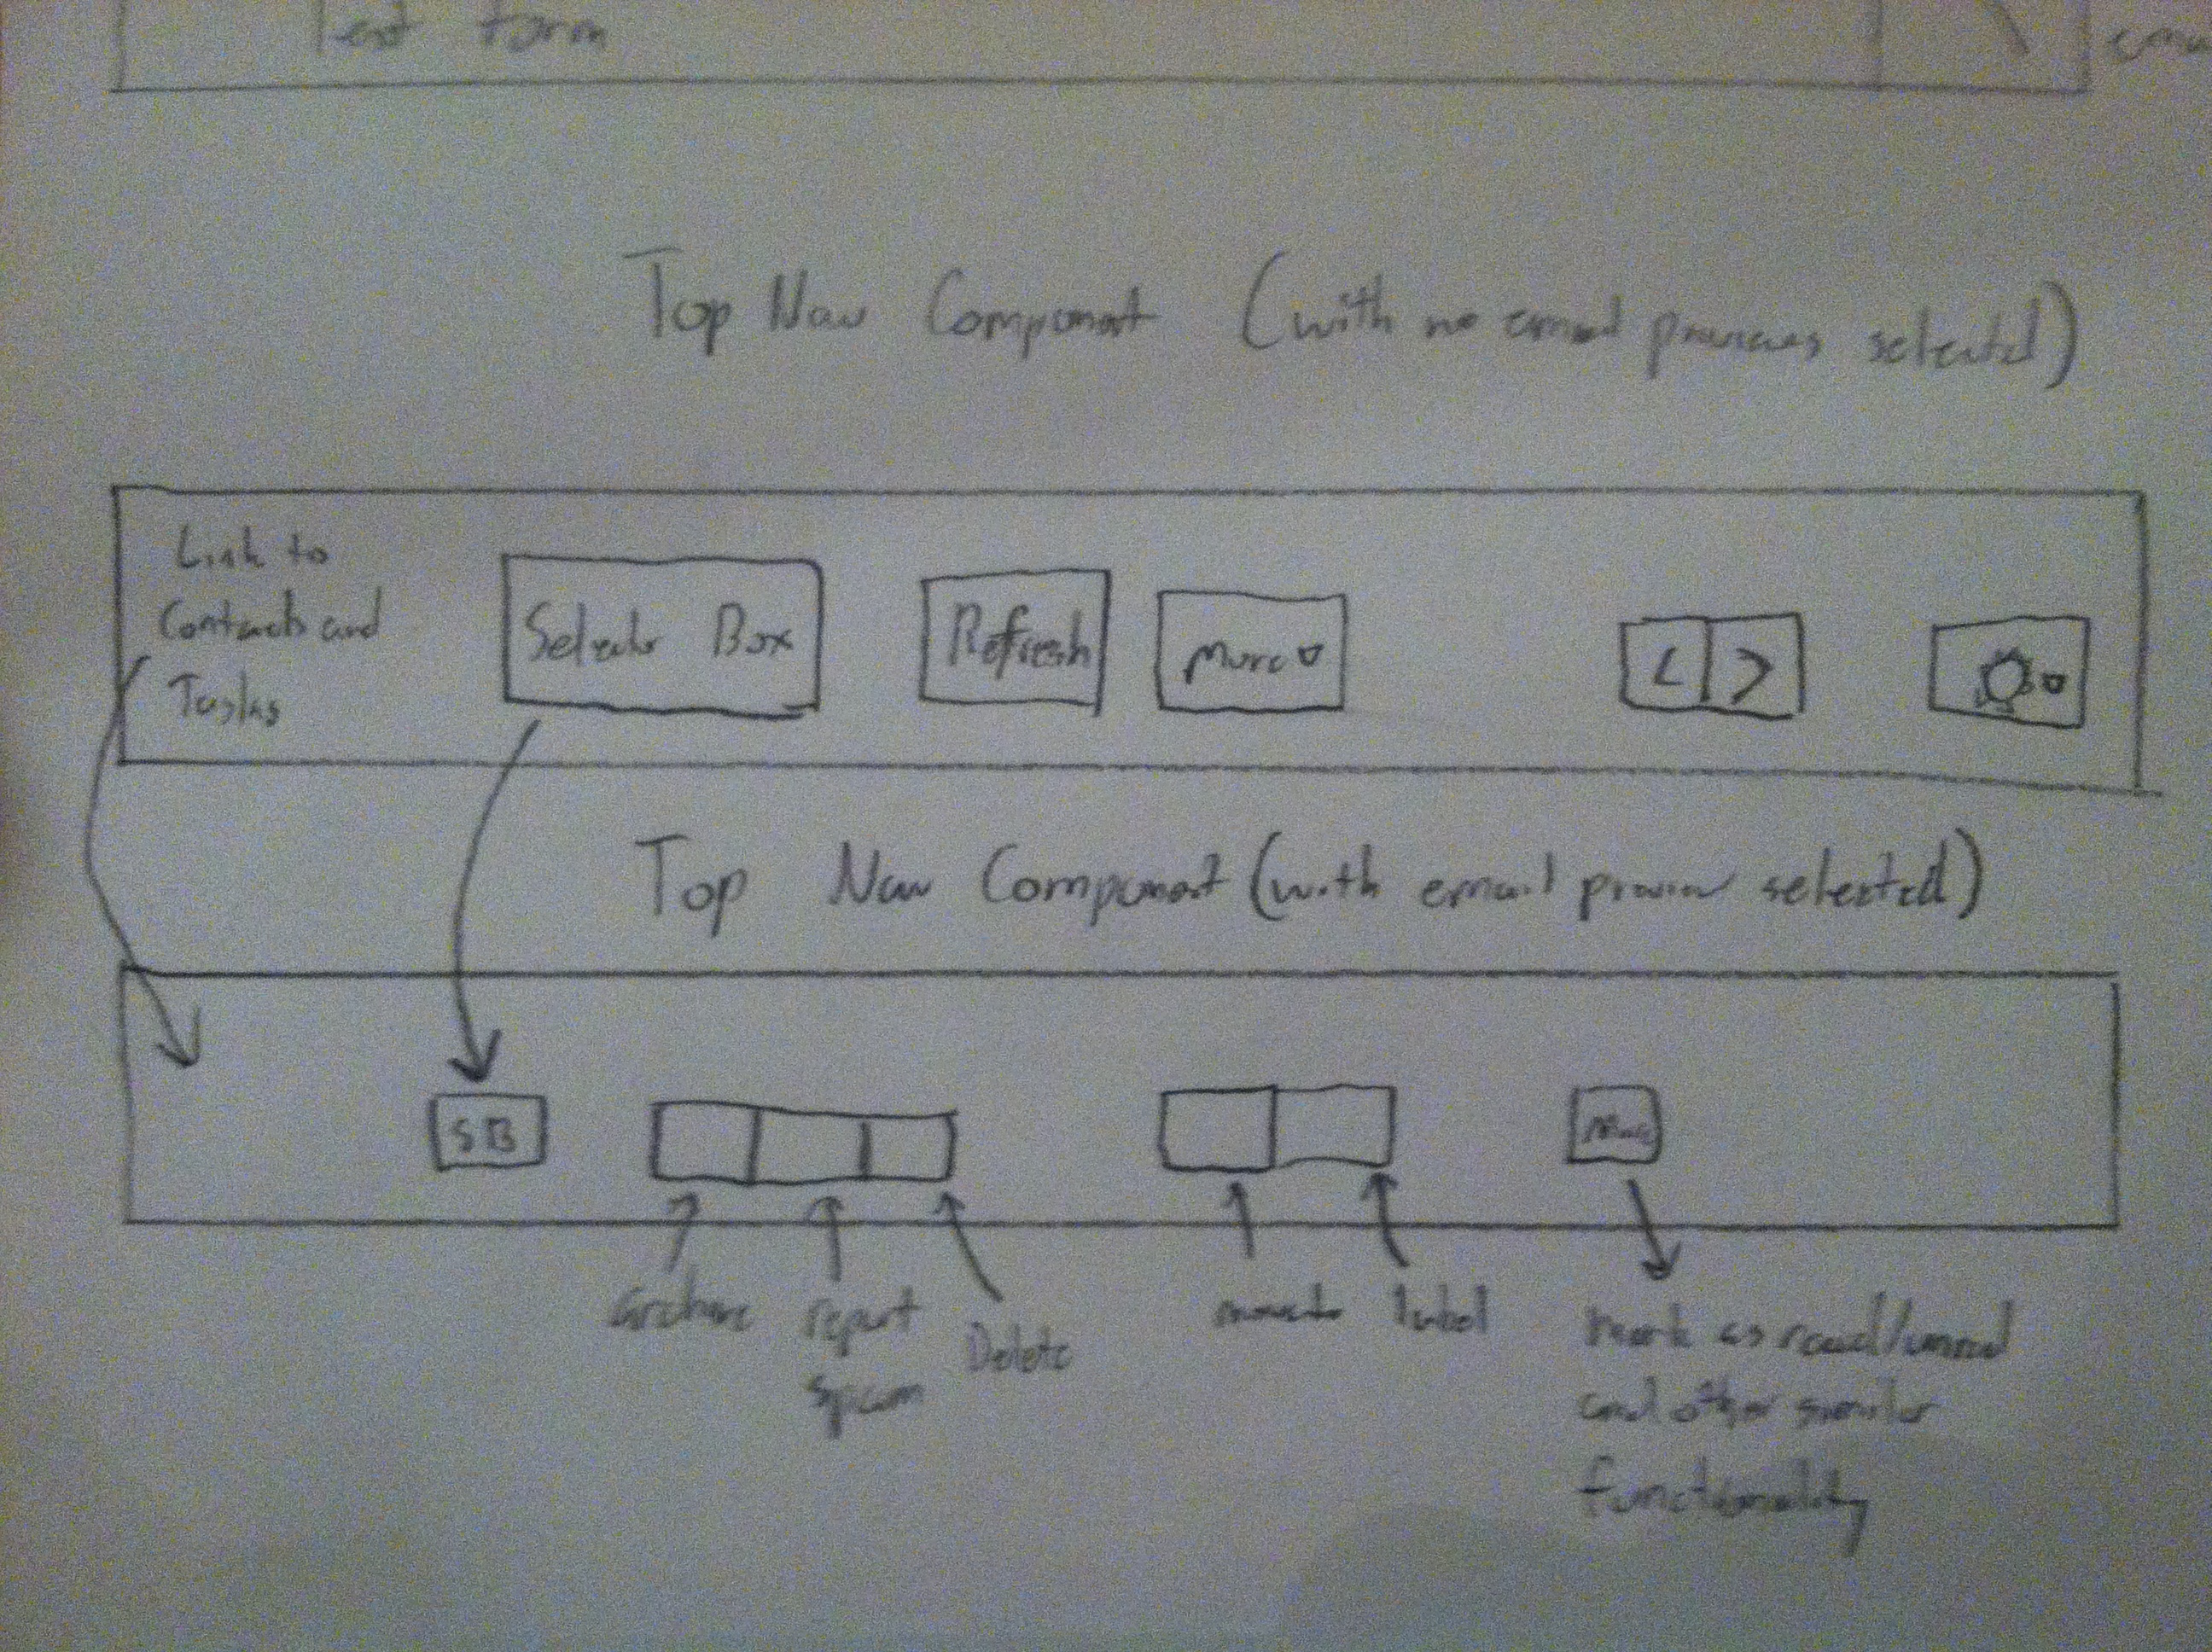 Text form
Top Nav Component (with no email previews selected)
Link to
Contacts and
Tasks
Selector Box
Refresh
More ▿
< >
Top Nav Component (with email preview selected)
SB
More
archive
report
spam
Delete
move to
label
mark as read/unread
and other similar
functionality